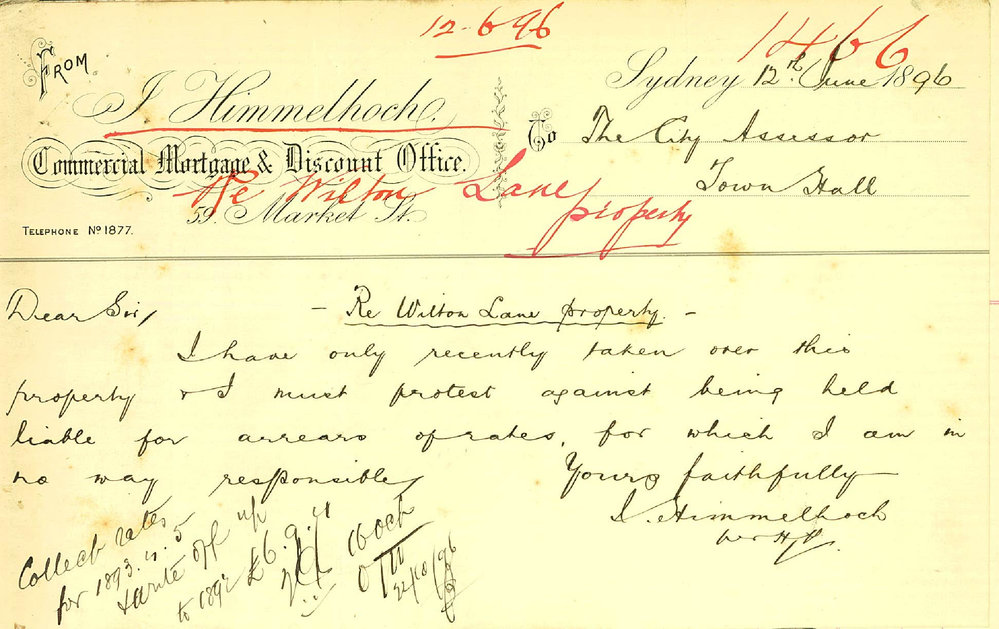 12-6-96
1466
From
J Himmelhoch.
Commercial Mortgage & Discount Office.
59 Market St.
Telephone No 1877.
Sydney 12th June 1896
To The City Assessor
Town Hall
Re Wilton Lane
property
Dear Sir,
- Re Wilton Lane property. -
I have only recently taken over this
property & I must protest against being held
liable for arrears of rates, for which I am in
no way responsible
Yours faithfully
J. Himmelhoch
per
Collect rates
for 1893. 4. 5
& write off up
to 1892 £6. 9. 4
16 Oct
22/10/96